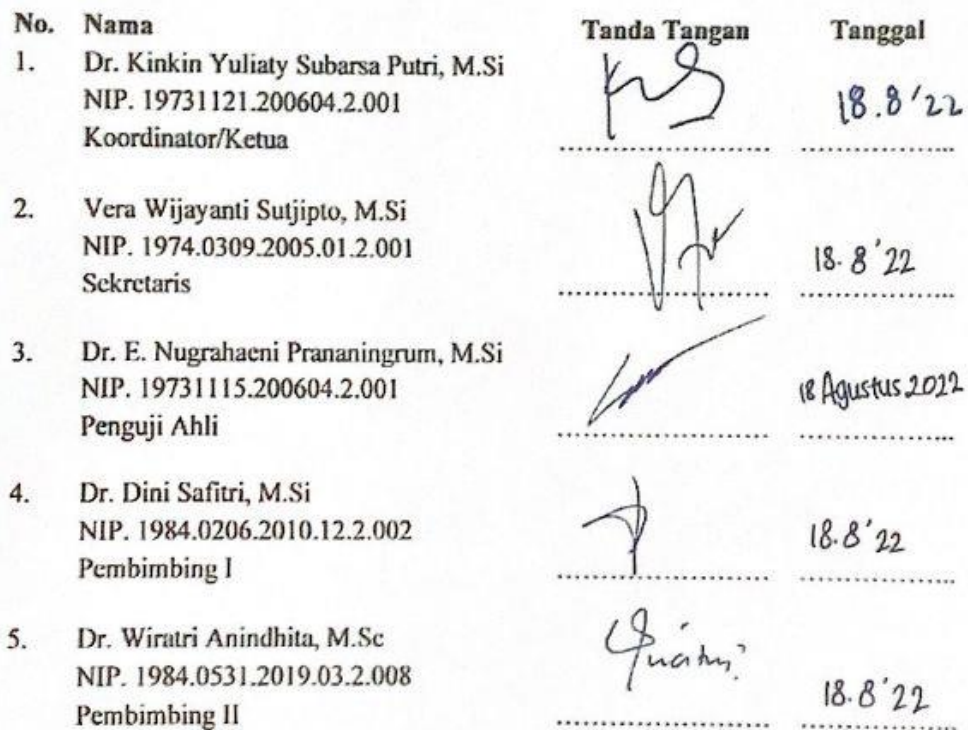 No. Nama Tanda Tangan Tanggal
1. Dr. Kinkin Yuliaty Subarsa Putri, M.Si
NIP. 19731121.200604.2.001 18.8'22
Koordinator/Ketua
2. Vera Wijayanti Sutjipto, M.Si
NIP. 1974.0309.2005.01.2.001 18.8'22
Sekretaris
3. Dr. E. Nugrahaeni Prananingrum, M.Si
NIP. 19731115.200604.2.001 18 Agustus 2022
Penguji Ahli
4. Dr. Dini Safitri, M.Si
NIP. 1984.0206.2010.12.2.002 18.8'22
Pembimbing I
5. Dr. Wiratri Anindhita, M.Sc
NIP. 1984.0531.2019.03.2.008 18.8'22
Pembimbing II